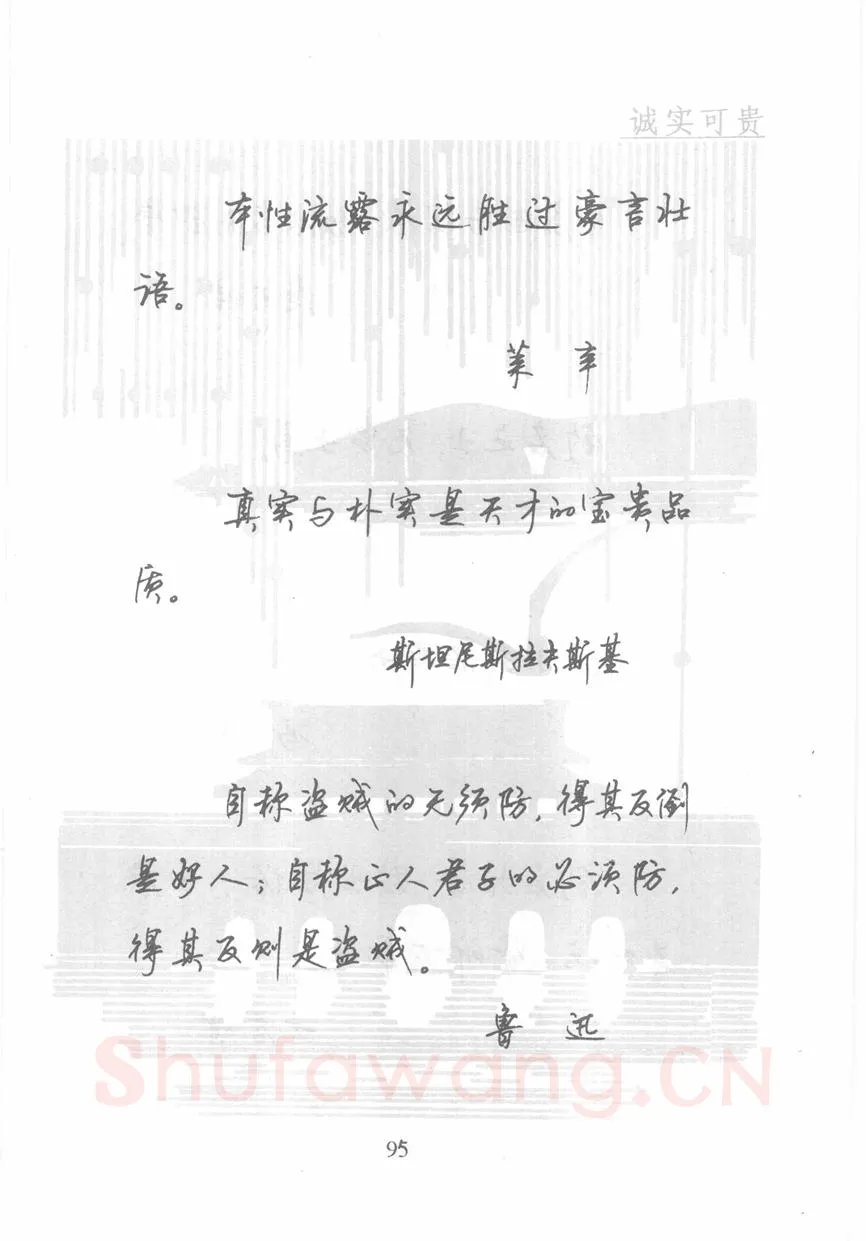 诚实可贵
本性流露永远胜过豪言壮
语。
莱 辛
真实与朴实是天才的宝贵品
质。
斯坦尼斯拉夫斯基
自称盗贼的无须防,得其反倒
是好人;自称正人君子的必须防,
得其反则是盗贼。
鲁 迅
Shufawang.CN
95